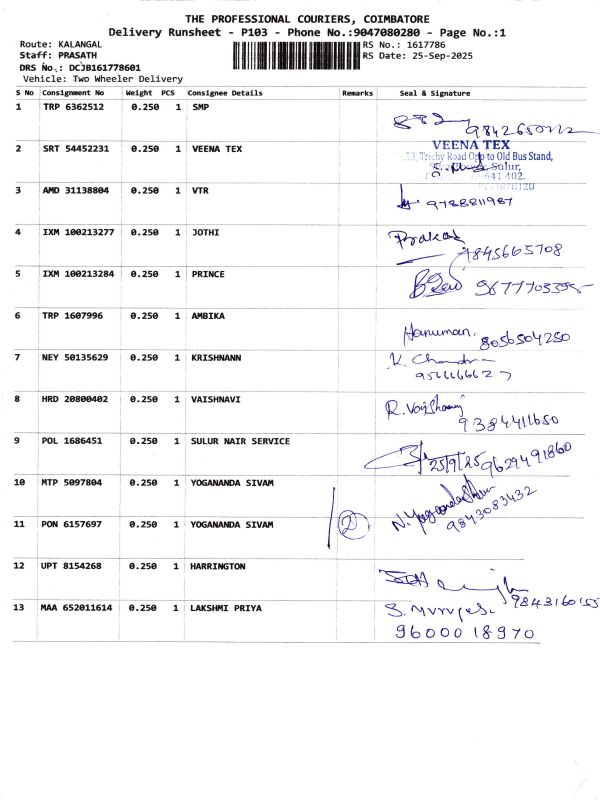 THE PROFESSIONAL COURIERS, COIMBATORE
Delivery Runsheet - P103 - Phone No.:9047080280 - Page No.:1
Route: KALANGAL RS No.: 1617786
Staff: PRASATH RS Date: 25-Sep-2025
DRS No.: DCJB161778601
Vehicle: Two Wheeler Delivery
S No Consignment No Weight PCS Consignee Details Remarks Seal & Signature
1 TRP 6362512 0.250 1 SMP
2 SRT 54452231 0.250 1 VEENA TEX
VEENA TEX
53, Trichy Road Opp to Old Bus Stand,
Sulur,
641 402.
3 AMD 31138804 0.250 1 VTR
9788811987
4 IXM 100213277 0.250 1 JOTHI
Prakash
9845665708
5 IXM 100213284 0.250 1 PRINCE
9677703395
6 TRP 1607996 0.250 1 AMBIKA
Hanuman. 8056504250
7 NEY 50135629 0.250 1 KRISHNANN
K. Chandra
8 HRD 20800402 0.250 1 VAISHNAVI
R. Vaishnavi
9384411650
9 POL 1686451 0.250 1 SULUR NAIR SERVICE
25/9/25 9629491860
10 MTP 5097804 0.250 1 YOGANANDA SIVAM
2 N. Yogananda Sivam
9843083432
11 PON 6157697 0.250 1 YOGANANDA SIVAM
12 UPT 8154268 0.250 1 HARRINGTON
9843160155
13 MAA 652011614 0.250 1 LAKSHMI PRIYA
9600018970